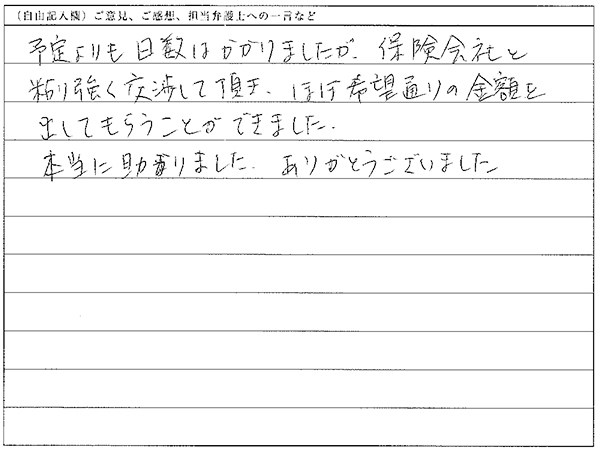 （自由記入欄）ご意見、ご感想、担当弁護士への一言など
予定よりも日数はかかりましたが、保険会社と
粘り強く交渉して頂き、ほぼ希望通りの金額を
出してもらうことができました。
本当に助かりました。ありがとうございました